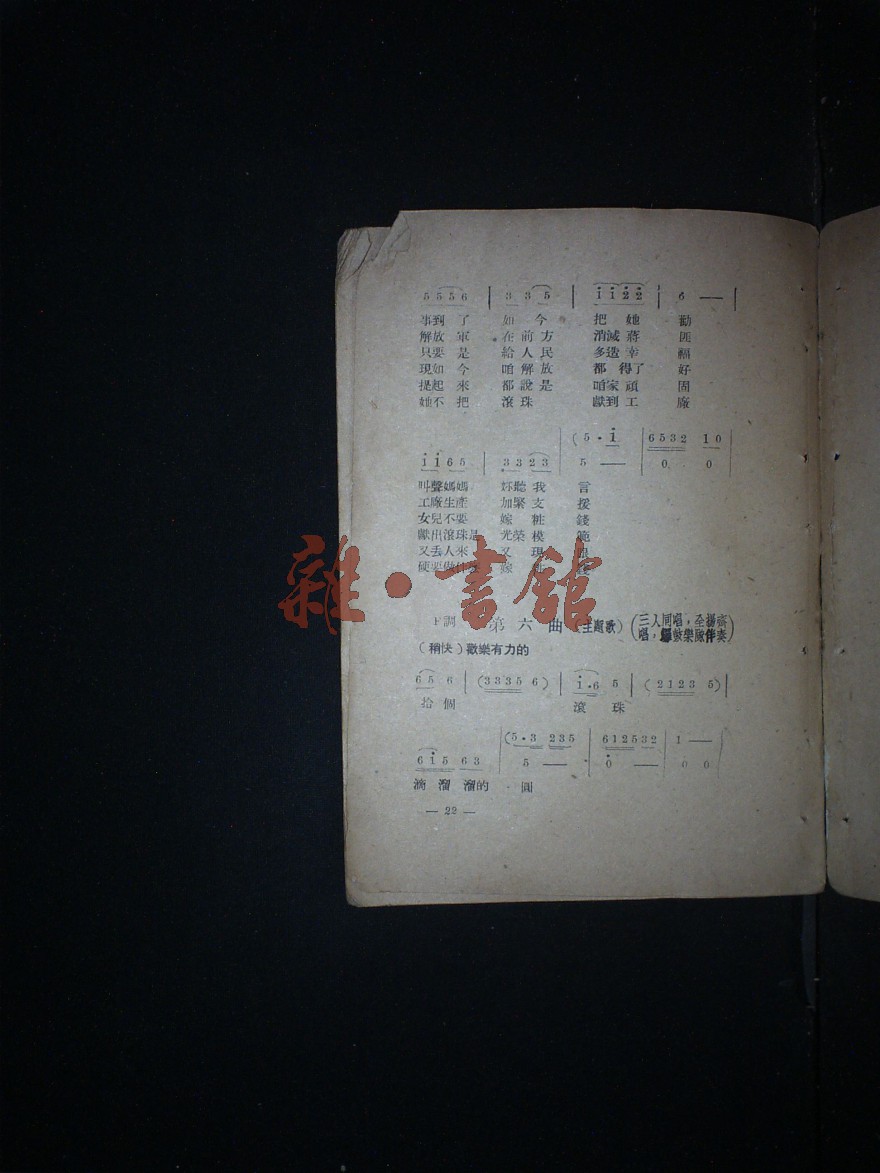 5 5 5 6 | 3 3 5 | i i 2 2 | 6 — |
事到 了 如 今 把 她 勸
解放 軍 在 前 方 消滅 蔣 匪
只要 是 給 人 民 多造 幸 福
現如 今 咱 解放 都 得了 好
提起 來 都 說 是 咱家 頑 固
她不 把 滾 珠 獻到 工 廠
(5 · i | 6532 10
i i 6 5 | 3 3 2 3 | 5 — | 0 0
叫聲媽媽 妳聽 我 言
工廠生產 加緊 支 援
女兒不要 嫁 粧 錢
獻出滾珠是 光榮 模 範
又丟人來 又 現 眼
硬要做 嫁
雜·書館
F調 第 六 曲 (主題歌) (三人同唱，全揚齊
唱， 鼓樂隊伴奏)
(稍快) 歡樂有力的
6 5 6 | (3 3 3 5 6) | i · 6 5 | (2 1 2 3 5) |
拾 個 滾 珠
(5 · 3 2 3 5 | 6 1 2 5 3 2 | 1 —
6 i 5 6 3 | 5 — | 0 — | 0 0
滴 溜 溜的 圓
— 22 —